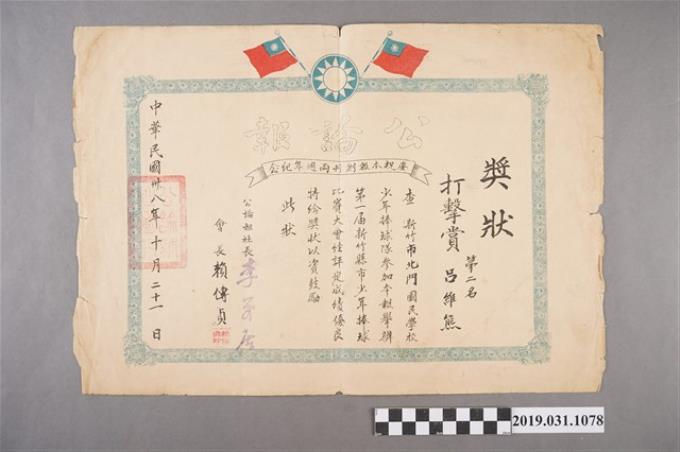 公論報
慶祝本報創刊兩週年紀念
獎狀
打擊賞 第二名 呂維熊
查 新竹市北門國民學校
少年棒球隊參加本報舉辦
第一屆新竹縣市少年棒球
比賽大會經評定成績優良
特給獎狀以資鼓勵
此狀
公論報社長 李萬居
會長 賴傳貞
中華民國卅八年十月二十一日
2019.031.1078